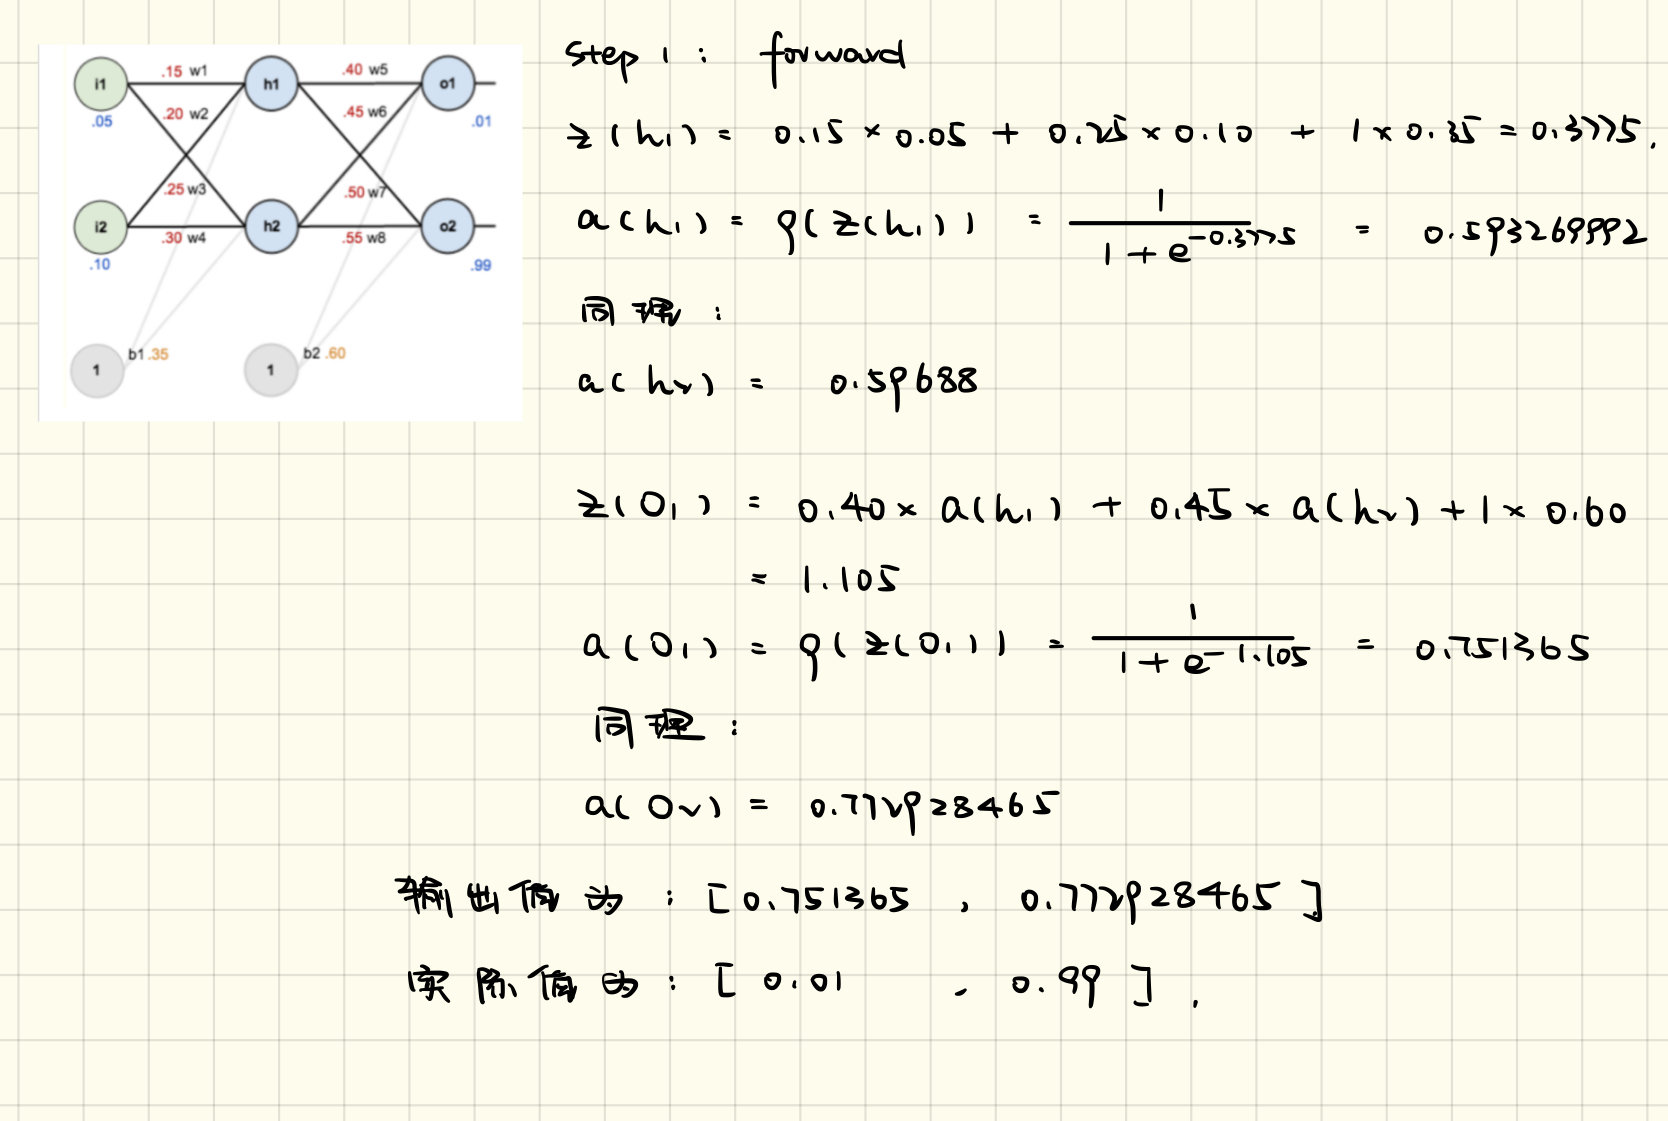 i1 .15 w1 h1 .40 w5 o1
.05 .20 w2 .45 w6 .01
.25 w3 .50 w7
i2 .30 w4 h2 .55 w8 o2
.10 .99
1 b1 .35 1 b2 .60
step 1 : forward
z(h₁) = 0.15 × 0.05 + 0.25 × 0.10 + 1 × 0.35 = 0.3775.
a(h₁) = g(z(h₁)) = 1 / (1 + e^-0.3775) = 0.593269992
同理：
a(h₂) = 0.59688
z(O₁) = 0.40 × a(h₁) + 0.45 × a(h₂) + 1 × 0.60
= 1.105
a(O₁) = g(z(O₁)) = 1 / (1 + e^-1.105) = 0.751365
同理：
a(O₂) = 0.772928465
输出值为：[0.751365 , 0.772928465]
实际值为：[0.01 , 0.99].